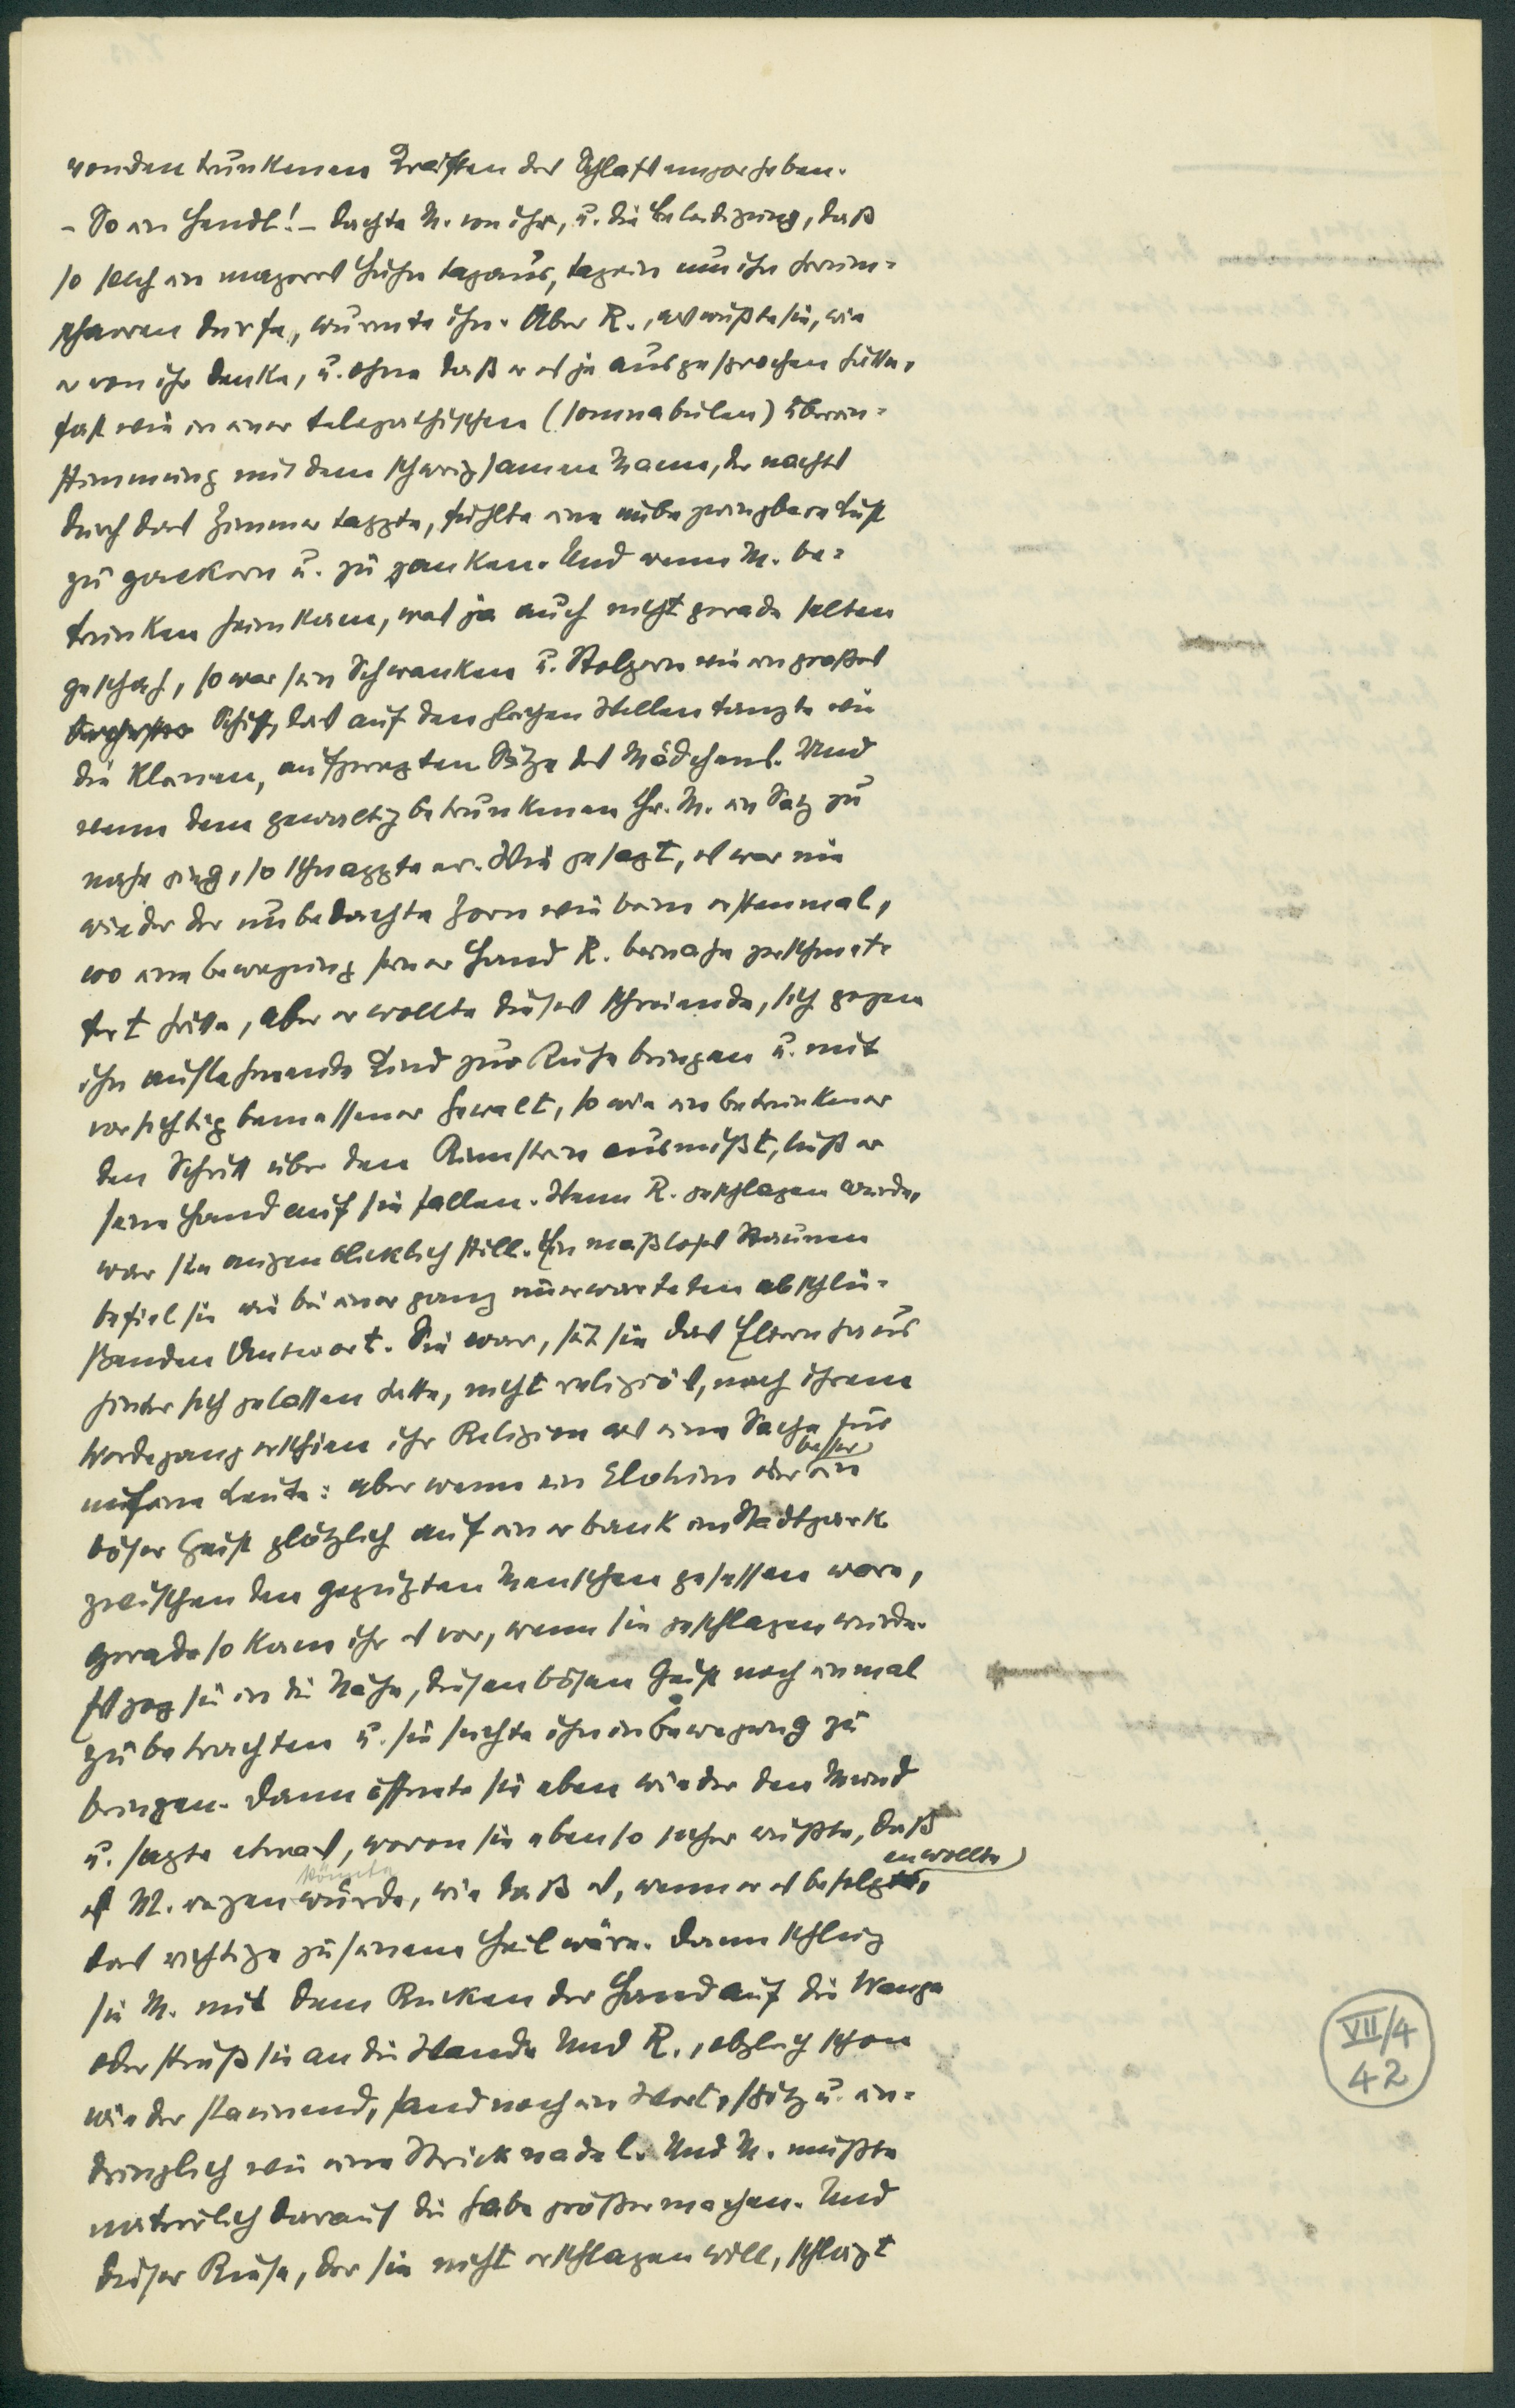 von den trunkenen Kräften des Schlafs emporheben.
– So ein Hendl! – dachte M. von ihr, u. die Beleidigung, daß
so solch ein mageres Huhn tagaus, tagein um ihn herum-
scharren durfte, wurmte ihn. Aber R., als wüßte sie, wie
er von ihr denke, u. ohne daß er es je ausgesprochen hätte,
fast wie in einer telepathischen (somnabulen) überein-
stimmung mit dem schweigsamen Mann, der nachts
durch das Zimmer tappte, fühlte eine unbezwingbare Lust
zu gackern u. zu zanken. Und wenn M. be-
trunken heimkam, was ja auch nicht gerade selten
geschah, so war sein Schwanken u. Stolpern wie ein großes
Schiff, das auf den gleichen Wellen tanzte wie
die kleinen, aufgeregten Sätze des Mädchens. Und
wenn dem gewaltig betrunkenen Hr. M. ein Satz zu
nahe ging, so schnappte er. Wie gesagt, es war nie
wieder der unbedachte Zorn wie beim erstenmal,
wo eine bewegung seiner Hand R. beinahe zerschmet-
tert hätte, aber er wollte dieses schreiende, sich gegen
ihn auflehnende Kind zur Ruhe bringen u. mit
vorsichtig bemessener Gewalt, so wie ein betrunkener
den Schritt über den Rinnstein ausmißt, ließ er
seine Hand auf sie fallen. Wenn R. geschlagen wurde,
war sie augenblicklich still. Ein maßloses Staunen
befiel sie wie bei einer ganz unerwarteten abschlie-
ßenden Antwort. Sie war, seit sie das Elternhaus
hinter sich gelassen hatte, nicht religiös, nach ihrem
Werdegang erschien ihr Religion als eine Sache für
unfeine Leute: aber wenn ein Elohim oder besser ein
böser Geist plötzlich auf einer bank im Stadtpark
zwischen den geputzten Menschen gesessen wäre,
gerade so kam ihr es vor, wenn sie geschlagen wurde.
Es zog sie in die Nähe, diesen bösen Geist noch einmal
zu betrachten u. sie suchte ihn in bewegung zu
bringen. Dann öffnete sie eben wieder den Mund
u. sagte etwas, wovon sie ebenso sicher wußte, daß
es M. reizen würde, könnte wie daß es, wenn er es befolgen wollte,
das richtige zu seinem Heil wäre. Dann schlug
sie M. mit dem Rücken der Hand auf die Wange
oder stieß sie an die Wand. Und R., obgleich schon
wieder staunend, fand noch ein Wort, spitz u. ein-
dringlich wie eine Stricknadel. Und M. mußte
natürlich darauf die Gabe größer machen. Und
dieser Riese, der sie nicht erschlagen will, schlägt
VII/4
42